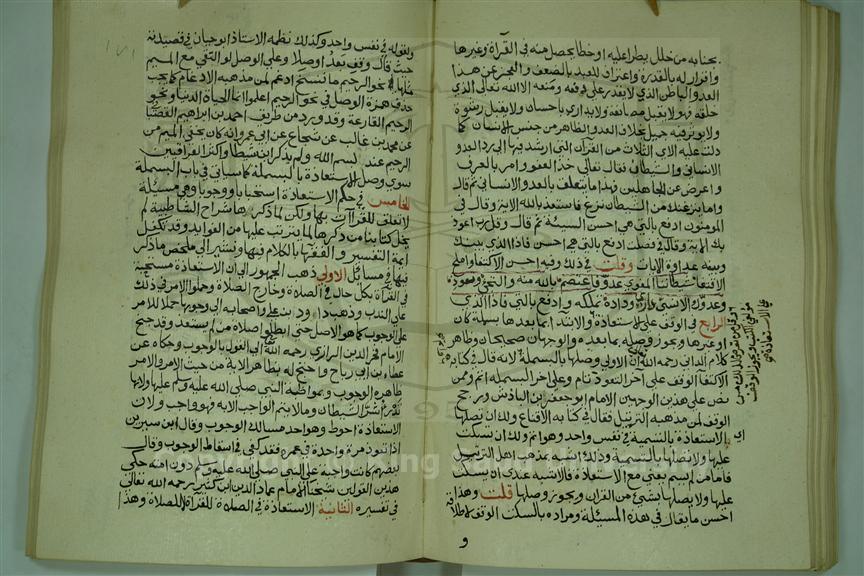 بجنابه من خلل يطرا عليه او خطا يحصل منه في القراة وغيرها
واقرار له بالقدرة واعتراف للعبد بالضعف والعجز عن هذا
العدو الباطن الذي لا يقدر على دفعه ومنعه الا الله تعالى الذي
خلقه فهو لا يقبل مصانعة ولا يدارى باحسان ولا يقبل رشوة
ولا يوثر فيه جميل بخلاف العدو الظاهر من جنس الانسان كما
دلت عليه الاي الثلاث من القران التي ارشد فيها الى رد العدو
الانساني والشيطاني فقال تعالى خذ العفو وامر بالعرف
واعرض عن الجاهلين فهذا ما يتعلق بالعدو الانساني ثم قال
واما ينزغنك من الشيطان نزغ فاستعذ بالله الاية وقال في
المومنون ادفع بالتي هي احسن السيئة ثم قال وقل رب اعوذ
بك الاية وقال في فصلت ادفع بالتي هي احسن فاذا الذي بينك
وبينه عداوة الايات وقلت في ذلك وفيه احسن الاكتفا واملح
الاقتفا شيطاننا المغوي عدو فاعتصم بالله منه والتجي وتعوذ
وعدوك الانسي دار وداده تملكه وادفع بالتي فاذا الذي
الرابع في الوقف على الاستعاذة والابتدا بما بعدها بسملة كان
او غيرها ويجوز وصله بما بعده والوجهان صحيحان وظاهر
كلام الداني رحمه الله ان الاولى وصلها بالبسملة لانه قال في كتابه
الاكتفا الوقف على اخر التعوذ تام وعلى اخر البسملة اتم وممن
نص على هذين الوجهين الامام ابو جعفر بن الباذش ورجح
الوقف لمن مذهبه الترتيل فقال في كتابه الاقناع ولك ان تصلها
اي الاستعاذة بالتسمية في نفس واحد وهو اتم ولك ان تسكت
عليها ولا تصلها بالتسمية وذلك اشبه بمذهب اهل الترتيل
فاما من لم يسم يعني مع الاستعاذة فالاشبه عندي ان يسكت
عليها ولا يصلها بشيء من القران ويجوز وصلها قلت وهذا
احسن ما يقال في هذه المسئلة ومراده بالسكت الوقف لاطلاقه
و
ولقوله في نفس واحد وكذلك نظمه الاستاذ ابو حيان في قصيدته
حيث قال وقف بعد او صلا وعلى الوصل لو التقى مع الميم
مثلها نحو الرجيم ما ننسخ ادغم لمن مذهبه الادغام كما يجب
حذف همزة الوصل في نحو الرجيم اعلموا انما الحياة الدنيا ونحو
الرجيم القارعة وقد ورد من طريق احمد بن ابراهيم القصباني
عن محمد بن غالب عن شجاع عن ابي عمرو انه كان يخفي الميم من
الرجيم عند بسم الله ولم يذكر ابن شيطا واكثر العراقيين
سوى وصل الاستعاذة بالبسملة كما سياتي في باب البسملة
الخامس في حكم الاستعاذة استحبابا ووجوبا وهي مسئلة
لا تعلق للقراات بها ولكن لما ذكرها شراح الشاطبية لم
يخل كتابنا من ذكرها لما يترتب عليها من الفوايد وقد تكفل
ائمة التفسير والفقها بالكلام فيها ونشير الى ملخص ما ذكر
فيها في مسائل الاولى ذهب الجمهور الى ان الاستعاذة مستحبة
في القراة بكل حال في الصلاة وخارج الصلاة وحملوا الامر في ذلك
على الندب وذهب داود بن علي واصحابه الى وجوبها حملا للامر
على الوجوب كما هو الاصل حتى ابطلوا صلاة من لم يستعذ وقد جنح
الامام فخر الدين الرازي رحمه الله الى القول بالوجوب وحكاه عن
عطاء بن ابي رباح واحتج له بظاهر الاية من حيث الامر والامر
ظاهره الوجوب وبمواظبة النبي صلى الله عليه وسلم عليها ولانها
تدرا شر الشيطان وما لا يتم الواجب الا به فهو واجب ولان
الاستعاذة احوط وهو احد مسالك الوجوب وقال ابن سيرين
اذا تعوذ مرة واحدة في عمره فقد كفى في اسقاط الوجوب وقال
بعضهم كانت واجبة على النبي صلى الله عليه وسلم دون امته حكى
هذين القولين شيخنا الامام عماد الدين ابن كثير رحمه الله تعالى
في تفسيره الثانية الاستعاذة في الصلاة للقراة لا للصلاة وهذا